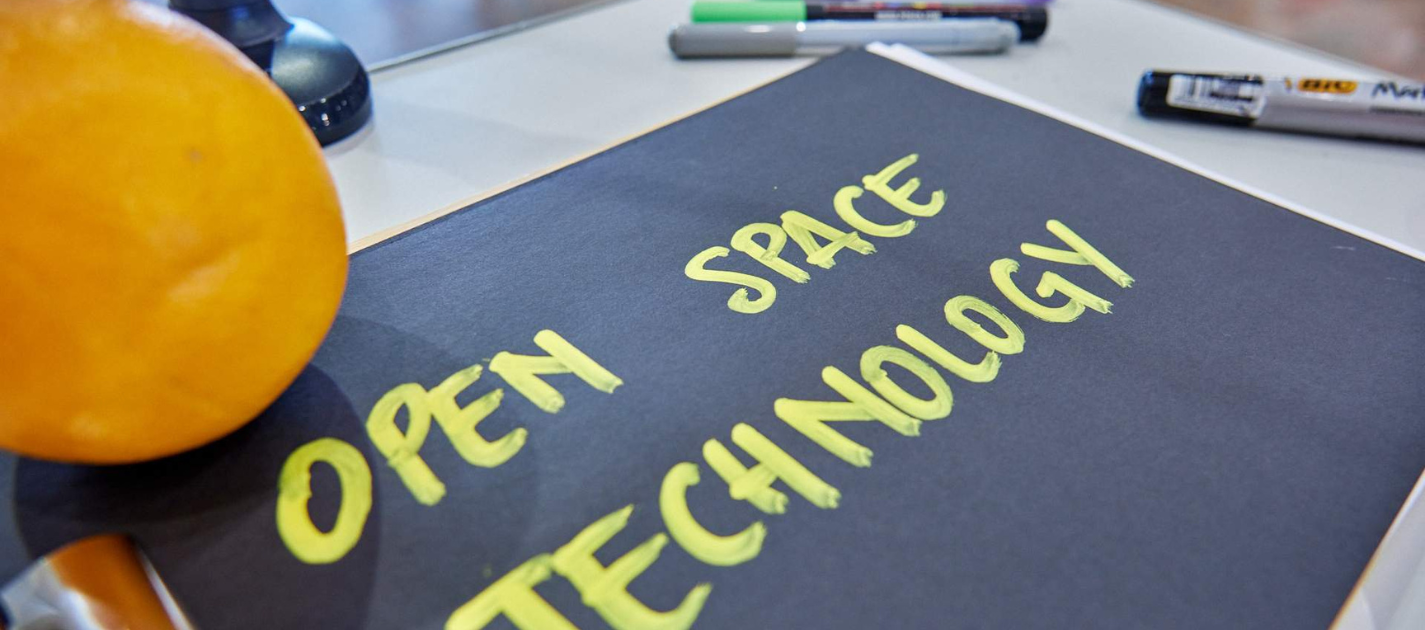 OPEN SPACE
TECHNOLOGY
BIC Mar